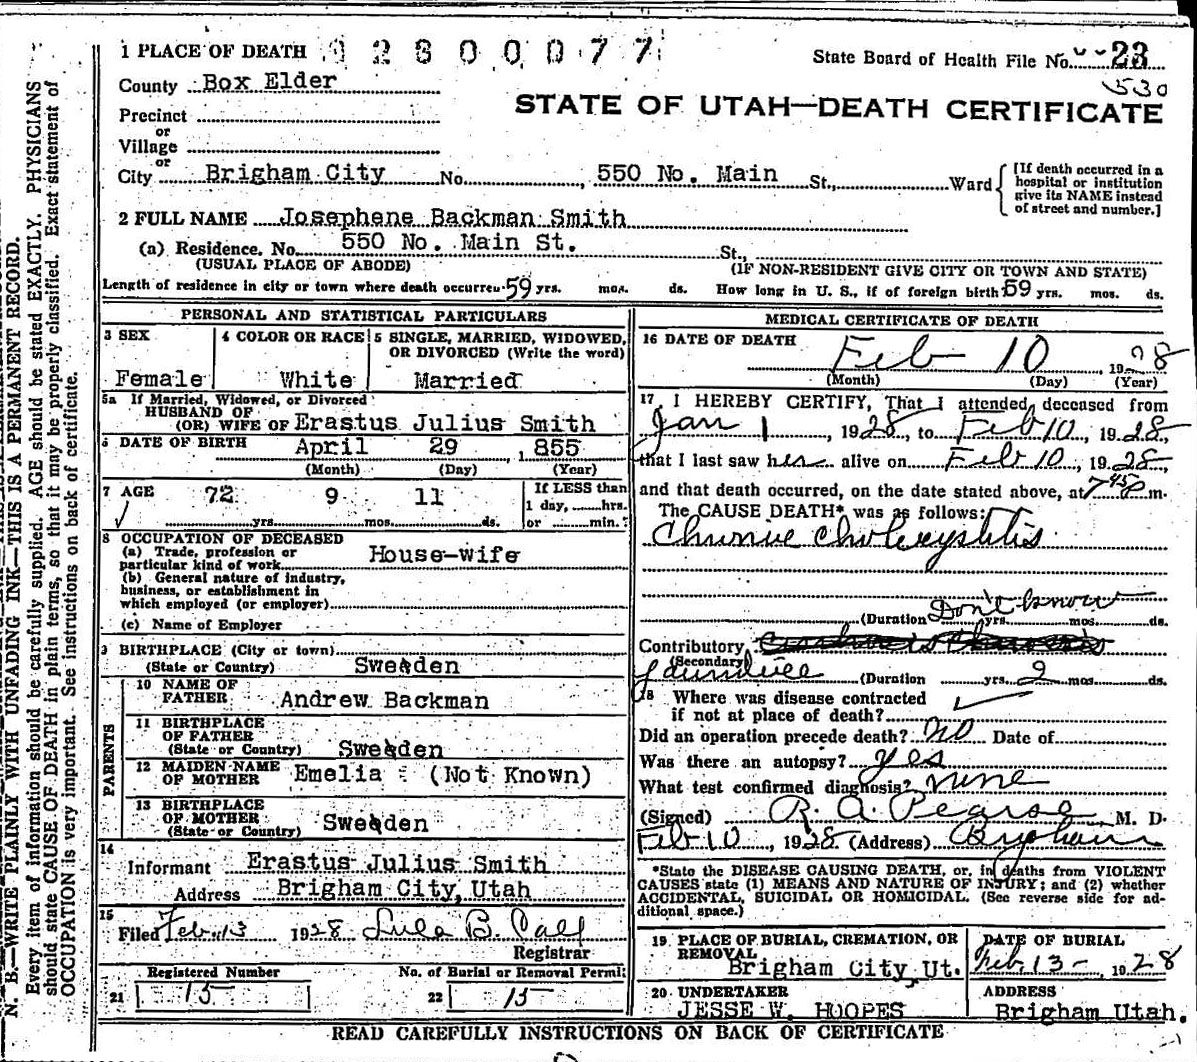 1 PLACE OF DEATH 9 2 8 0 0 0 7 7
State Board of Health File No. 23
530
County Box Elder
STATE OF UTAH—DEATH CERTIFICATE
Precinct
or
Village
or
City Brigham City No. , 550 No. Main St., Ward
[If death occurred in a hospital or institution give its NAME instead of street and number.]
2 FULL NAME Josephene Backman Smith
(a) Residence. No. 550 No. Main St. St.,
(USUAL PLACE OF ABODE) (IF NON-RESIDENT GIVE CITY OR TOWN AND STATE)
Length of residence in city or town where death occurred 59 yrs. mos. ds. How long in U. S., if of foreign birth 59 yrs. mos. ds.
PERSONAL AND STATISTICAL PARTICULARS
3 SEX 4 COLOR OR RACE 5 SINGLE, MARRIED, WIDOWED,
OR DIVORCED (Write the word)
Female White Married
5a If Married, Widowed, or Divorced
HUSBAND OF
(OR) WIFE OF Erastus Julius Smith
6 DATE OF BIRTH April 29 , 1 855
(Month) (Day) (Year)
7 AGE 72 9 11 If LESS than
1 day, hrs.
yrs. mos. ds. or min.
8 OCCUPATION OF DECEASED
(a) Trade, profession or
particular kind of work House-wife
(b) General nature of industry,
business, or establishment in
which employed (or employer)
(c) Name of Employer
9 BIRTHPLACE (City or town)
(State or Country) Sweeden
PARENTS
10 NAME OF
FATHER Andrew Backman
11 BIRTHPLACE
OF FATHER
(State or Country) Sweeden
12 MAIDEN NAME
OF MOTHER Emelia (Not Known)
13 BIRTHPLACE
OF MOTHER
(State or Country) Sweeden
14
Informant Erastus Julius Smith
Address Brigham City, Utah
15
Filed Feb. 13 1928 Lula B. Call
Registrar
Registered Number No. of Burial or Removal Permit
21 15 22 15
MEDICAL CERTIFICATE OF DEATH
16 DATE OF DEATH
Feb 10 1928
(Month) (Day) (Year)
17 I HEREBY CERTIFY, That I attended deceased from
Jan 1 , 1928, to Feb 10, 1928,
that I last saw her alive on Feb 10, 1928,
and that death occurred, on the date stated above, at 7 45 m.
The CAUSE DEATH* was as follows:
Chronic Cholecystitis
(Duration Don't know yrs. mos. ds.
Contributory
(Secondary)
Jaundice (Duration yrs. 2 mos. ds.
18 Where was disease contracted
if not at place of death?
Did an operation precede death? No Date of
Was there an autopsy? Yes
What test confirmed diagnosis? None
(Signed) R. A. Pearse, M. D.
Feb 10, 1928 (Address) Brigham
*State the DISEASE CAUSING DEATH, or, in deaths from VIOLENT
CAUSES state (1) MEANS AND NATURE OF INJURY; and (2) whether
ACCIDENTAL, SUICIDAL OR HOMICIDAL. (See reverse side for ad-
ditional space.)
19 PLACE OF BURIAL, CREMATION, OR
REMOVAL
Brigham City, Ut.
DATE OF BURIAL
Feb 13- 1928
20 UNDERTAKER
JESSE W. HOOPES
ADDRESS
Brigham Utah.
READ CAREFULLY INSTRUCTIONS ON BACK OF CERTIFICATE
N. B.—WRITE PLAINLY WITH UNFADING INK—THIS IS A PERMANENT RECORD.
Every item of information should be carefully supplied. AGE should be stated EXACTLY. PHYSICIANS
should state CAUSE OF DEATH in plain terms, so that it may be properly classified. Exact statement of
OCCUPATION is very important. See instructions on back of certificate.